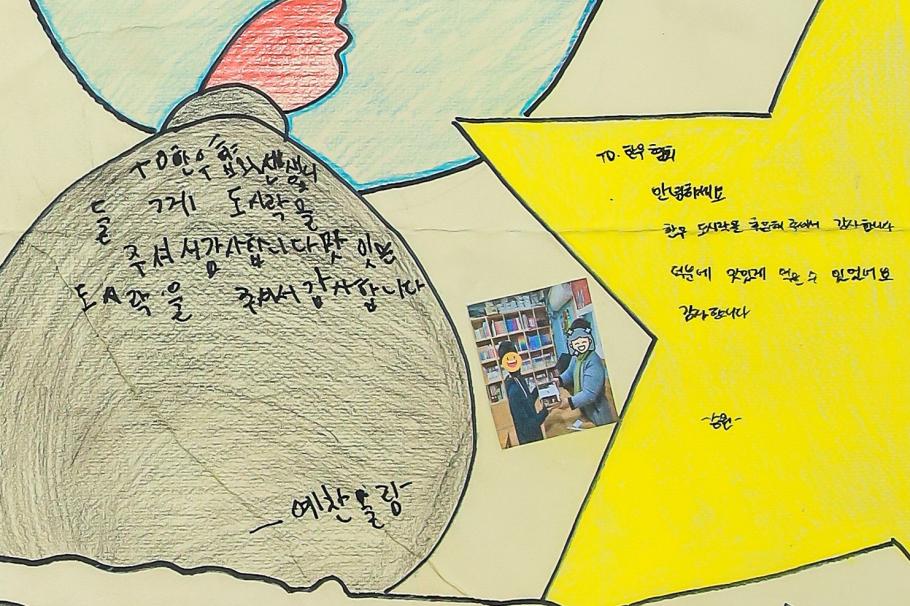 TO 한우협회선생님
들 게 도시락을
주셔서감사합니다 맛있는
도시락을 주셔서 감사합니다
TO. 한우 협회
안녕하세요
한우 도시락을 후원해 주셔서 감사합니다
덕분에 맛있게 먹을 수 있었어요
감사합니다